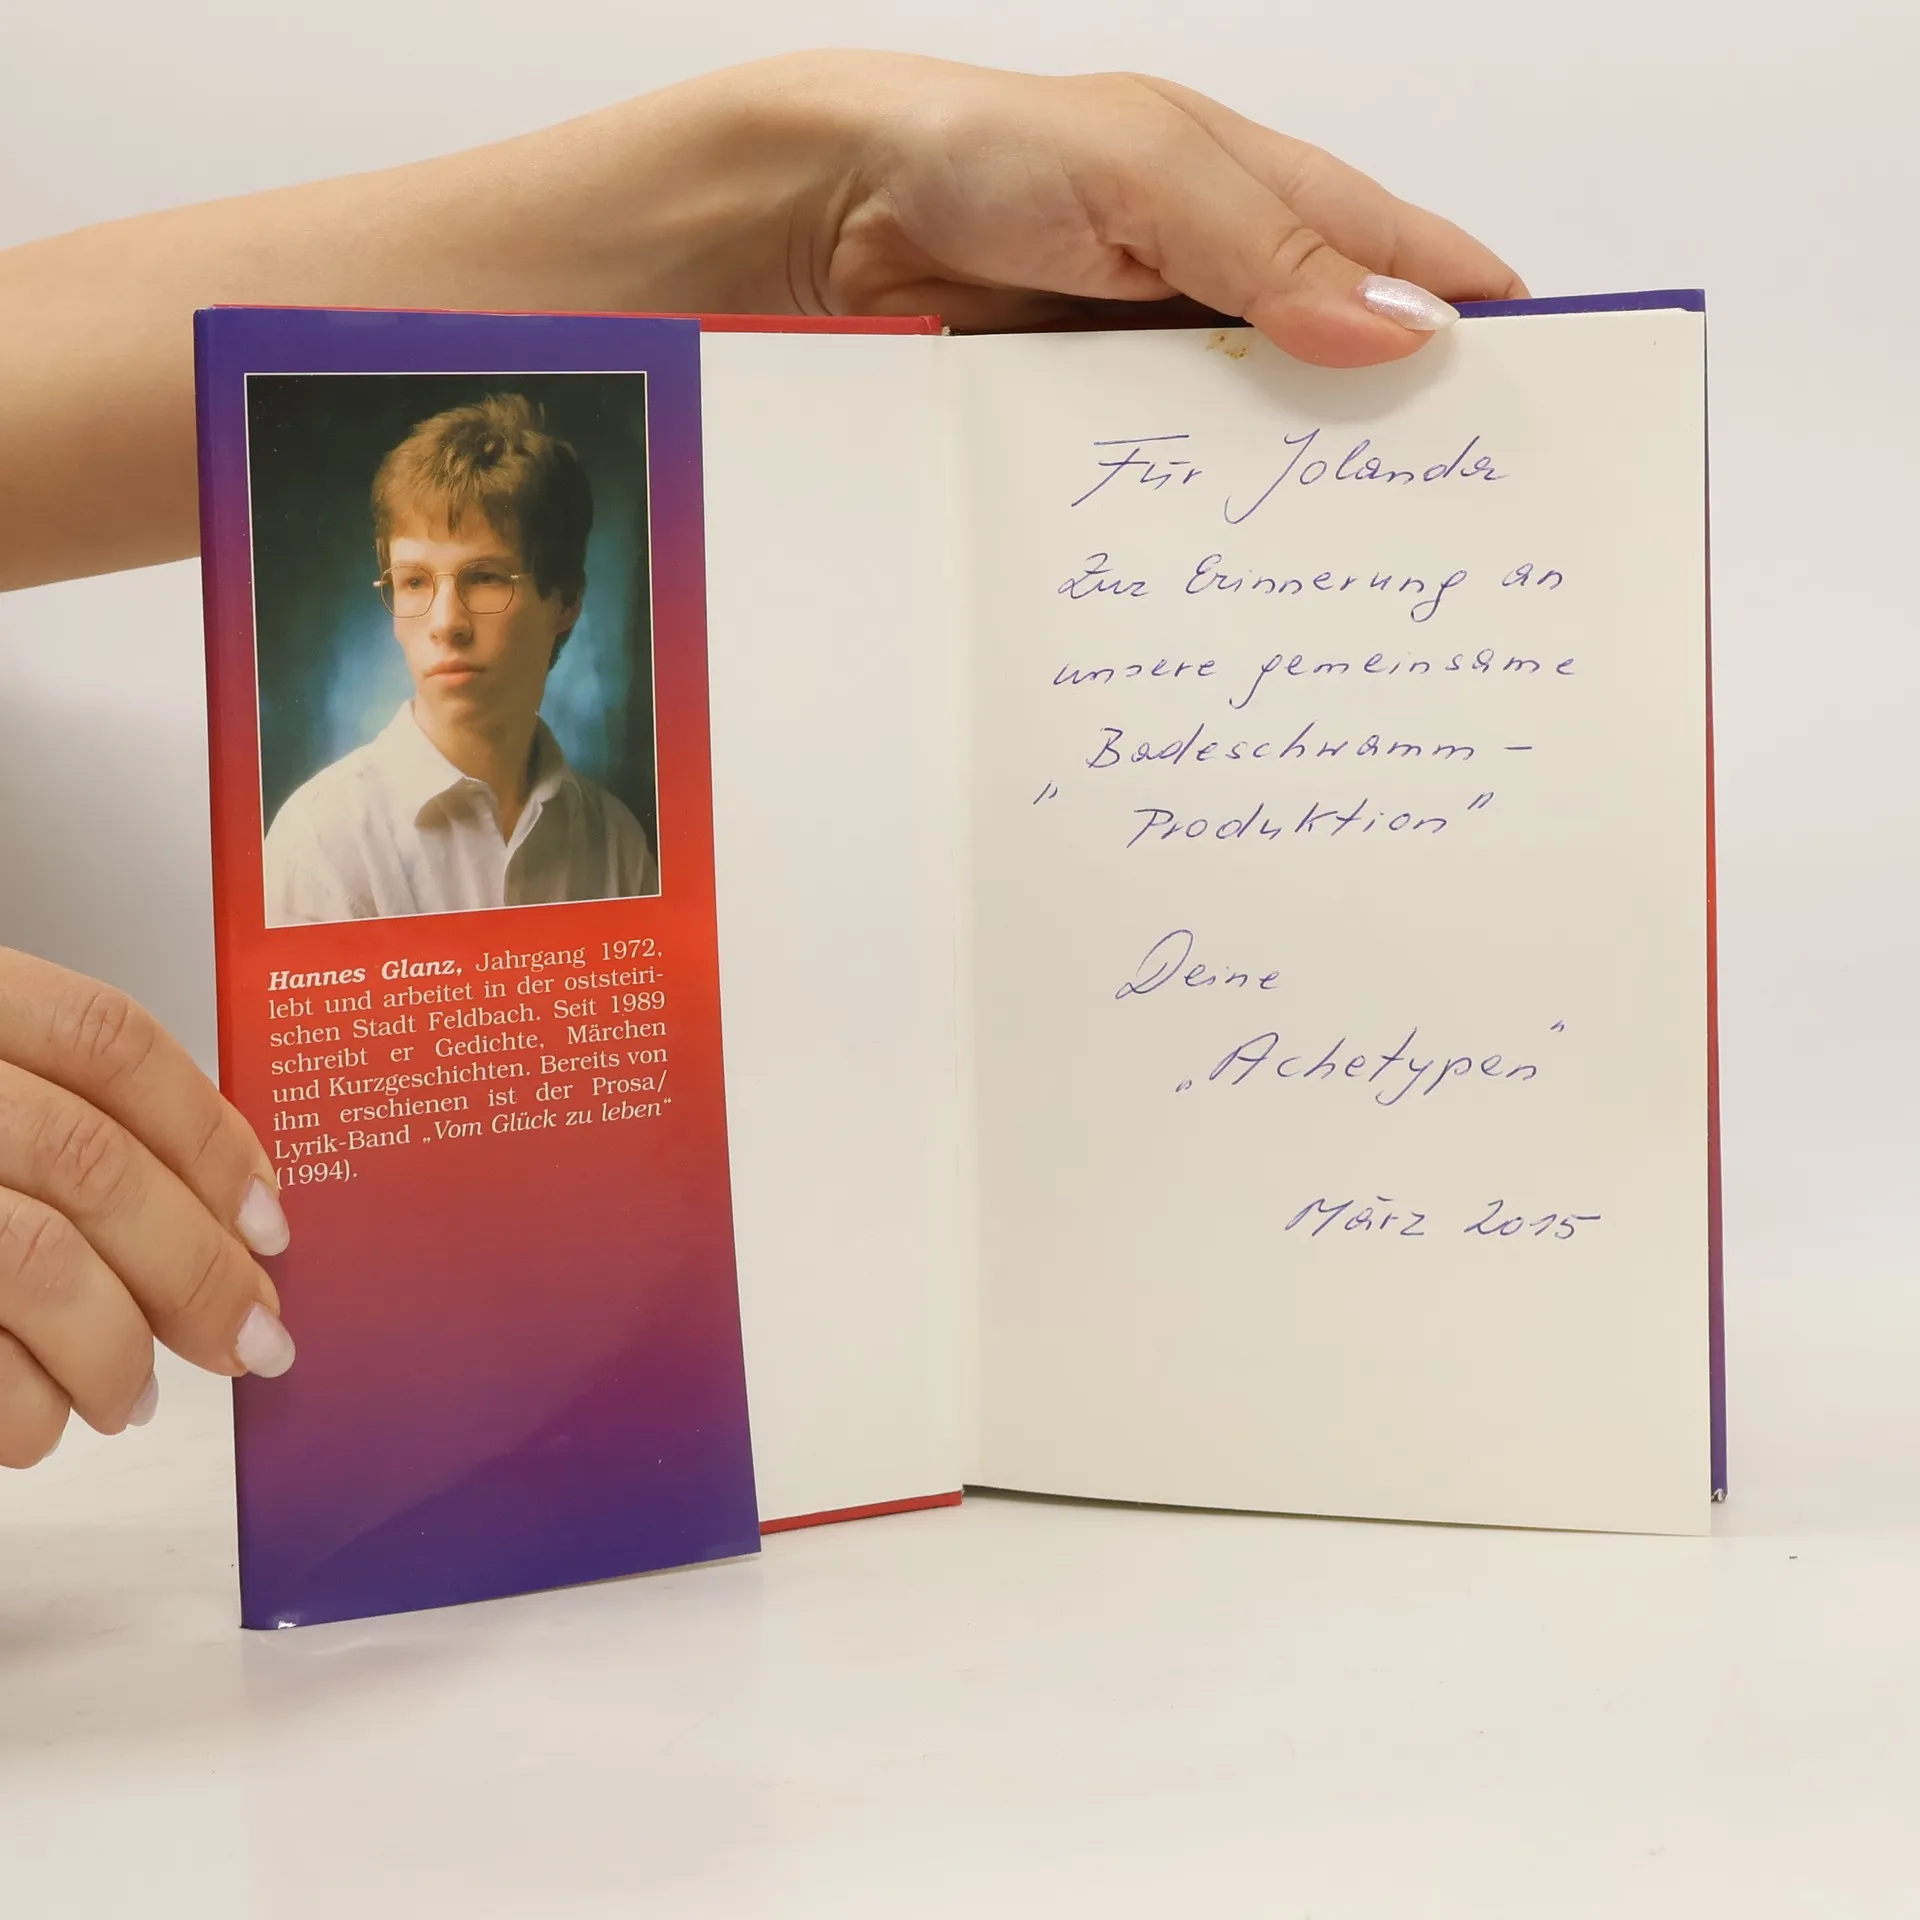 Hannes Glanz, Jahrgang 1972,
lebt und arbeitet in der oststeiri-
schen Stadt Feldbach. Seit 1989
schreibt er Gedichte, Märchen
und Kurzgeschichten. Bereits von
ihm erschienen ist der Prosa/
Lyrik-Band „Vom Glück zu leben“
(1994).
Für Jolanda
Zur Erinnerung an
unsere gemeinsame
"Badeschwamm-
Produktion"
Deine
„Achetypen"
März 2015